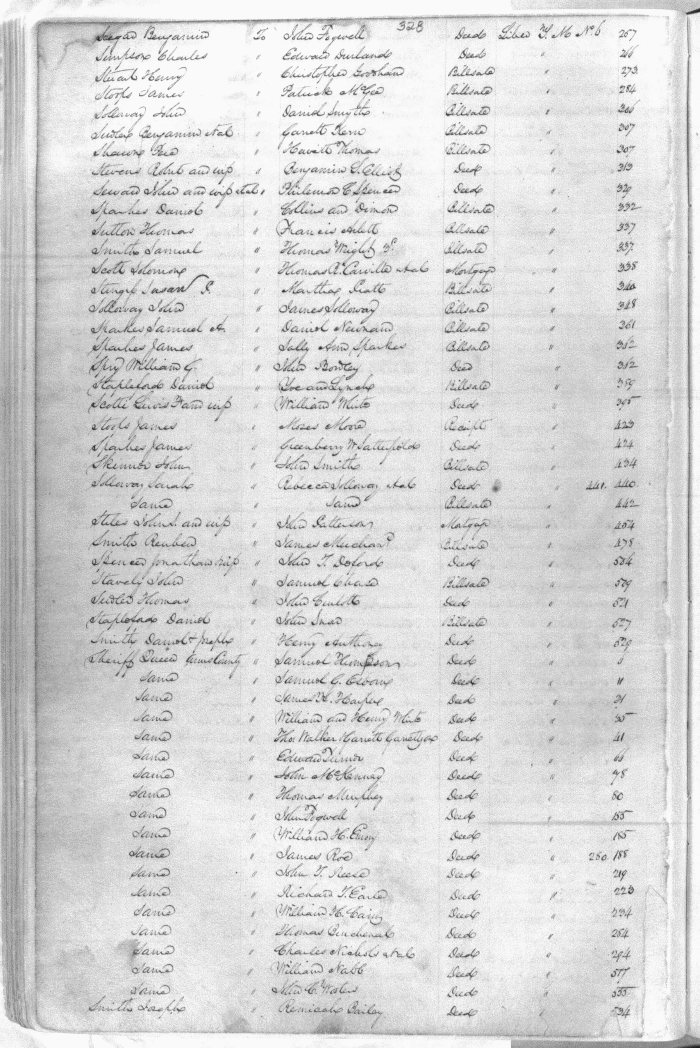 328
Seegar Benjamin To John Fogwell Deed Liber T. M. No. 6 257
Simpson Charles " Edward Durland Deed " 266
Stuart Henry " Christopher Goodhand Billsale " 273
Stoops James " Patrick McGee Billsale " 284
Solloway John " David Smythe Billsale " 306
Sudler Benjamin & al " Garrett Kern Billsale " 307
" Hewett Thomas Billsale " 307
Stevens Robert and wife " Benjamin S. Elliott Deed " 313
Seward John and wife et al " Philemon C. Spencer Deed " 329
Sparkes Daniel " Collins and Dimon Billsale " 332
Sutton Thomas " Francis Arlett Billsale " 337
Smith Samuel " Thomas Wright 3d. Billsale " 337
Scott Solomon " Thomas R. Carville & al Mortgage " 338
Susan S. " Martha Scott Billsale " 340
Solloway John " James Solloway Billsale " 348
Sparkes Samuel A. " Daniel Newnam Billsale " 361
Sparkes James " Sally Ann Sparkes Billsale " 362
Spry William C. " John Bowley Deed " 362
Stapleford Daniel " Roe and Lynch Billsale " 389
Scotti Lewis F and wife " William White Deed " 395
Stoops James " Moses Moore Receipt " 423
Sparkes James " Greenberry W. Satterfield Deed " 424
Skinner John " John Smith Billsale " 434
Solloway Sarah " Rebecca Solloway & al Deed " 441. 440
Same " Same Billsale " 442
Stiles John S. and wife " John Patterson Mortgage " 454
Smith Reuben " James Merchant Billsale " 478
Spencer Jonathan & wife " John T. Doford Deed " 504
Stavely John " Samuel Chase Billsale " 509
Sudler Thomas " John Coulott Deed " 521
Stapleford Daniel " John Billsale " 527
Smith Daniel & Joseph " Henry Anthony Deed " 529
Sheriff Queen Anns County " Samuel Thompson Deed " 5
Same " Samuel G. Osborn Deed " 11
Same " James H. Harper Deed " 21
Same " William and Henry White Deed " 35
Same " Thos. Walker Garrett Deed " 41
Same " Edward Turner Deed " 66
Same " John McKenney Deed " 78
Same " Thomas Murphey Deed " 80
Same " John Fogwell Deed " 155
Same " William H. Emory Deed " 185
Same " James Roe Deed " 280. 188
Same " John T. Reese Deed " 219
Same " Richard T. Earle Deed " 223
Same " William H. Cain Deed " 234
Same " Thomas Burchenal Deed " 264
Same " Charles Nichols & al Deed " 294
Same " William Nabb Deed " 517
Same " John C. Wooters Deed " 535
Smith Joseph " Remicah Bailey Deed " 534